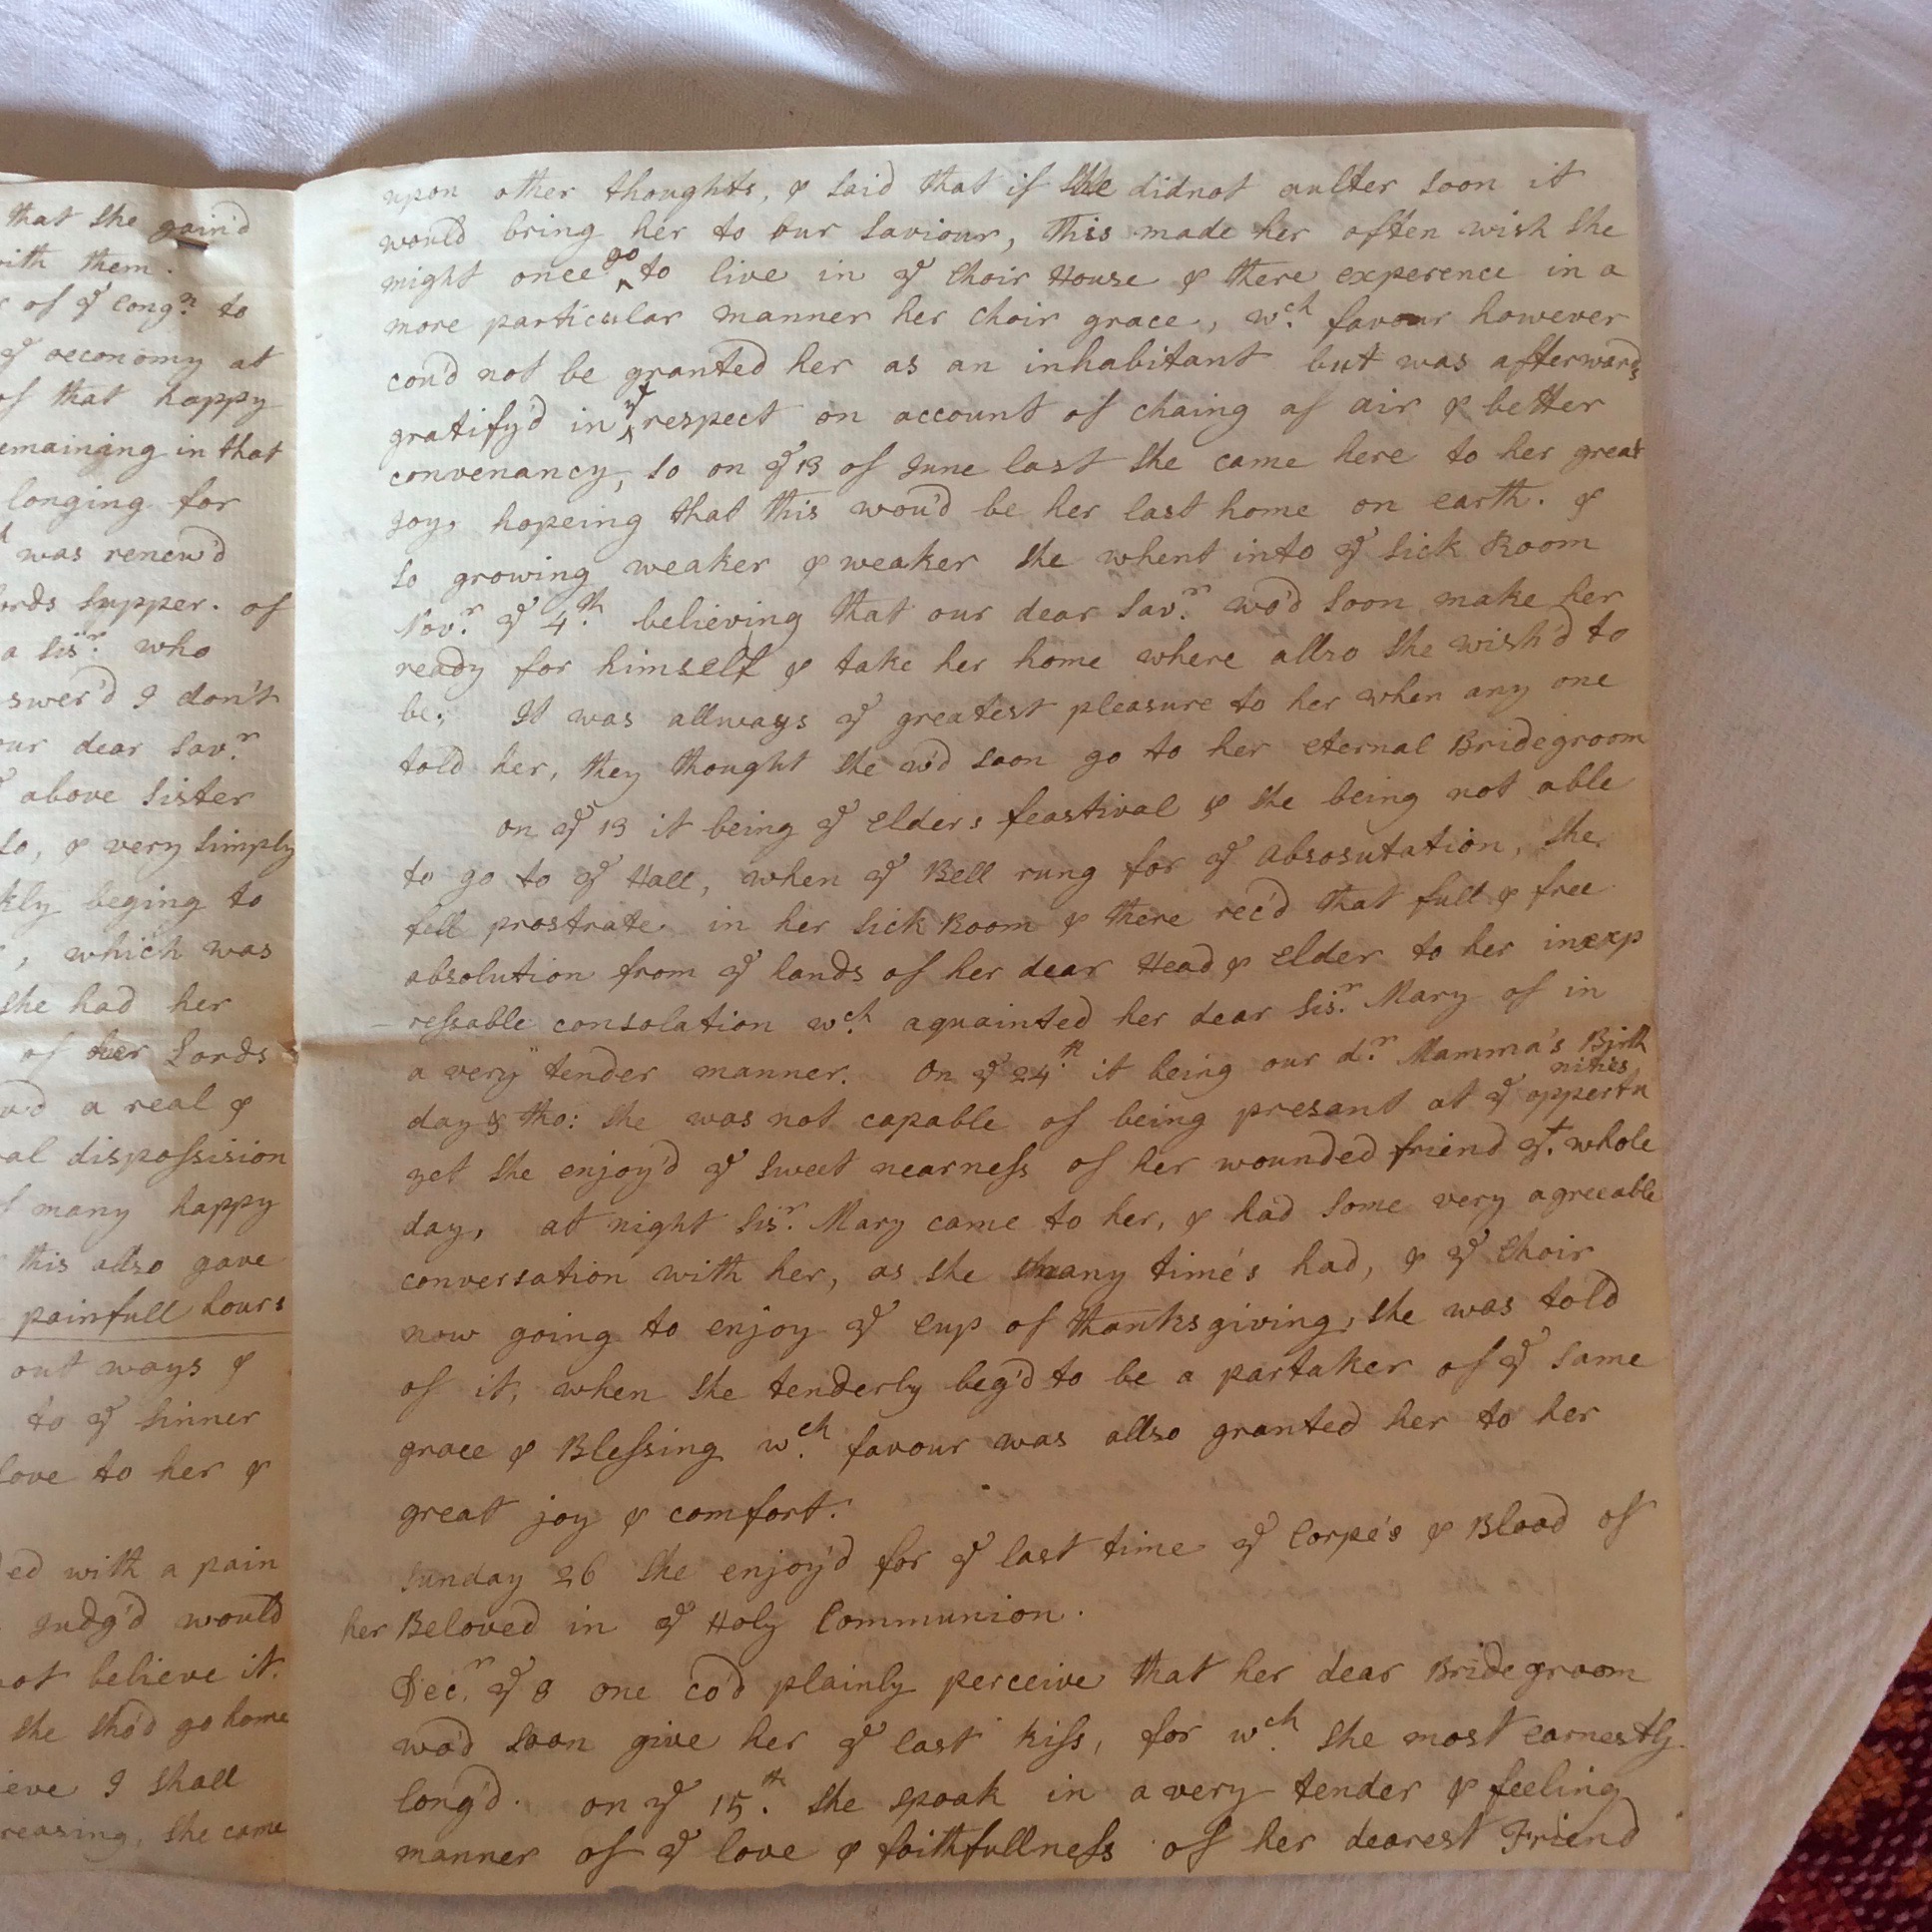 that she gain'd
with them.
of yᵉ Congⁿ. to
yᵉ oeconomy at
of that happy
remaining in that
longing for
was renew'd
Lords Supper. of
a Sisʳ. who
swer'd I don't
our dear Savʳ.
above Sister
so, & very simply
kly beging to
, which was
she had her
of her Lords
a real &
al dispossision
many happy
this allso gave
painfull hours
out ways &
to yᵉ Sinner
love to her &
ed with a pain
Judg'd would
not believe it.
she sho'd go home
ieve I shall
reasing, she came
upon other thoughts, & said that if she didnot aulter soon it
would bring her to our Saviour, This made her often wish she
might once ^go to live in yᵉ Choir House & there experence in a
more particular manner her choir grace, wᶜʰ. favour however
cou'd not be granted her as an inhabitant but was afterwards
gratify'd in ^yᵗ respect on account of chaing of air & better
convenancy, so on yᵉ 13 of June last she came here to her great
joy, hopeing that this wou'd be her last home on earth. &
so growing weaker & weaker she whent into yᵉ Sick Room
Novʳ. yᵉ 4ᵗʰ. believing that our dear Savʳ. wo'd soon make her
ready for himself & take her home where allso she wish'd to
be. It was allways yᵉ greatest pleasure to her when any one
told her, they thought she w'd soon go to her eternal Bridegroom
on yᵉ 13 it being yᵉ Elders feastival & she being not able
to go to yᵉ Hall, when yᵉ Bell rung for yᵉ Absosutation, she
fell prostrate in her Sick Room & there rec'd that full & free
absolution from yᵉ hands of her dear Head & Elder to her inexp
- ressable consolation wᶜʰ. aquainted her dear Sisʳ. Mary of in
a very tender manner. On yᵉ 24ᵗʰ. it being our dʳ. Mamma's Birth
day & tho: she was not capable of being presant at yᵉ oppertu nities,
yet she enjoy'd yᵉ sweet nearness of her wounded friend yᵗ. whole
day, at night Sisʳ. Mary came to her, & had some very agreeable
conversation with her, as she many time's had, & yᵉ Choir
now going to enjoy yᵉ Cup of thanksgiving, she was told
of it, when she tenderly beg'd to be a partaker of yᵉ same
grace & Blessing wᶜʰ. favour was allso granted her to her
great joy & comfort.
Sunday 26 she enjoy'd for yᵉ last time yᵉ Corpe's & Blood of
her Beloved in yᵉ Holy Communion.
Decʳ. yᵉ 8 one co'd plainly perceive that her dear Bridegroom
wo'd soon give her yᵉ last kiss, for wᶜʰ. she most earnestly
long'd. on yᵉ 15ᵗʰ. she spoak in a very tender & feeling
manner of yᵉ love & faithfullness of her dearest Friend